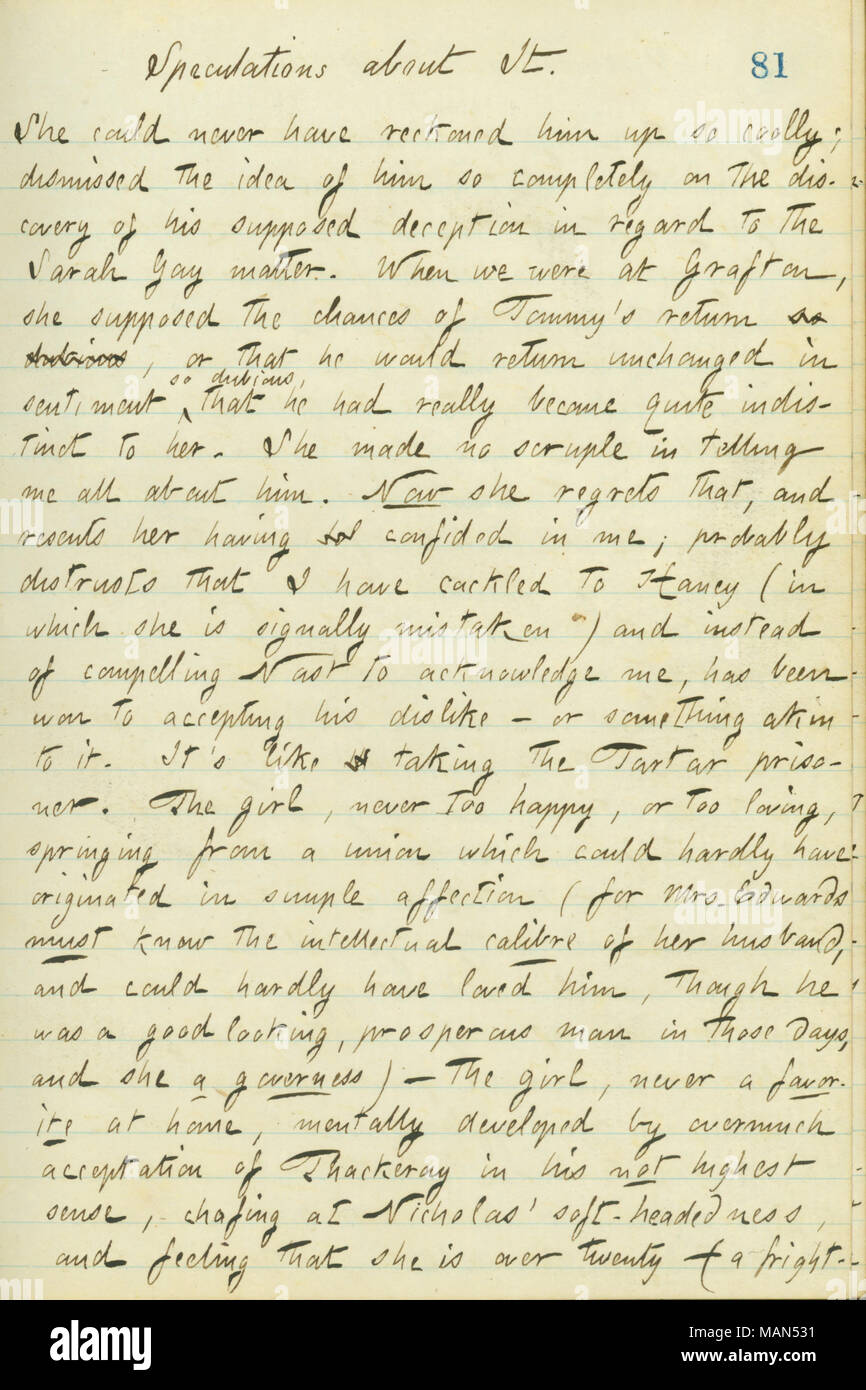 Speculations about It.
81
She could never have reckoned him up so coolly;
dismissed the idea of him so completely on the dis-
covery of his supposed deception in regard to the
Sarah Gay matter. When we were at Grafton,
she supposed the chances of Tommy's return so
dubious, or that he would return unchanged in
so dubious,
sentiment that he had really become quite indis-
tinct to her. She made no scruple in telling
me all about him. Now she regrets that, and
resents her having confided in me; probably
distrusts that I have cackled to Haney (in
which she is signally mistaken) and instead
of compelling Nast to acknowledge me, has been
won to accepting his dislike — or something akin
to it. It's like taking the Tartar priso-
ner. The girl, never too happy, or too loving,
springing from a union which could hardly have
originated in simple affection (for Mrs. Edwards
must know the intellectual calibre of her husband,
and could hardly have loved him, though he
was a good looking, prosperous man in those days,
and she a governess) — the girl, never a favor-
ite at home, mentally developed by overmuch
acceptation of Thackeray in his not highest
sense, chafing at Nicholas' soft-headedness,
and feeling that she is over twenty (a fright-
alamy
Image ID: MAN531
www.alamy.com